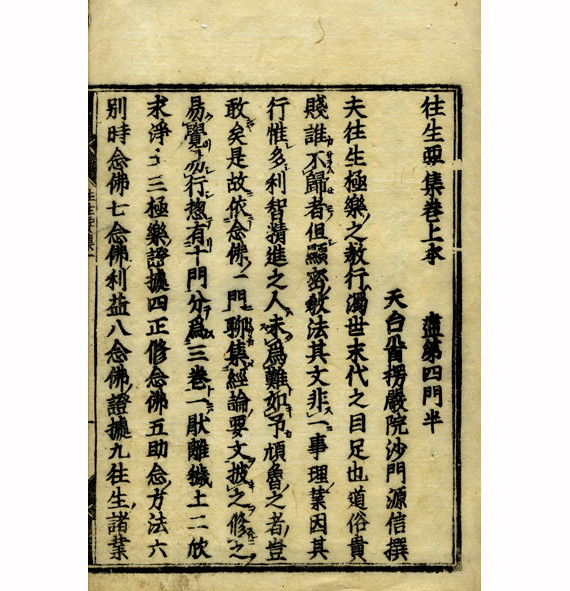 往生要集巻上本 盡第四門半
天台首楞嚴院沙門源信撰
夫往生極樂之教行濁世末代之目足也道俗貴
賤誰不歸者但顯密教法其文非一事理業因其
行惟多利智精進之人未爲難如予頑魯之者豈
敢矣是故依念佛一門聊集經論要文披之修之
易覺易行惣有十門分爲三巻一猒離穢土二欣
求淨土三極樂證據四正修念佛五助念方法六
別時念佛七念佛利益八念佛證據九往生諸業